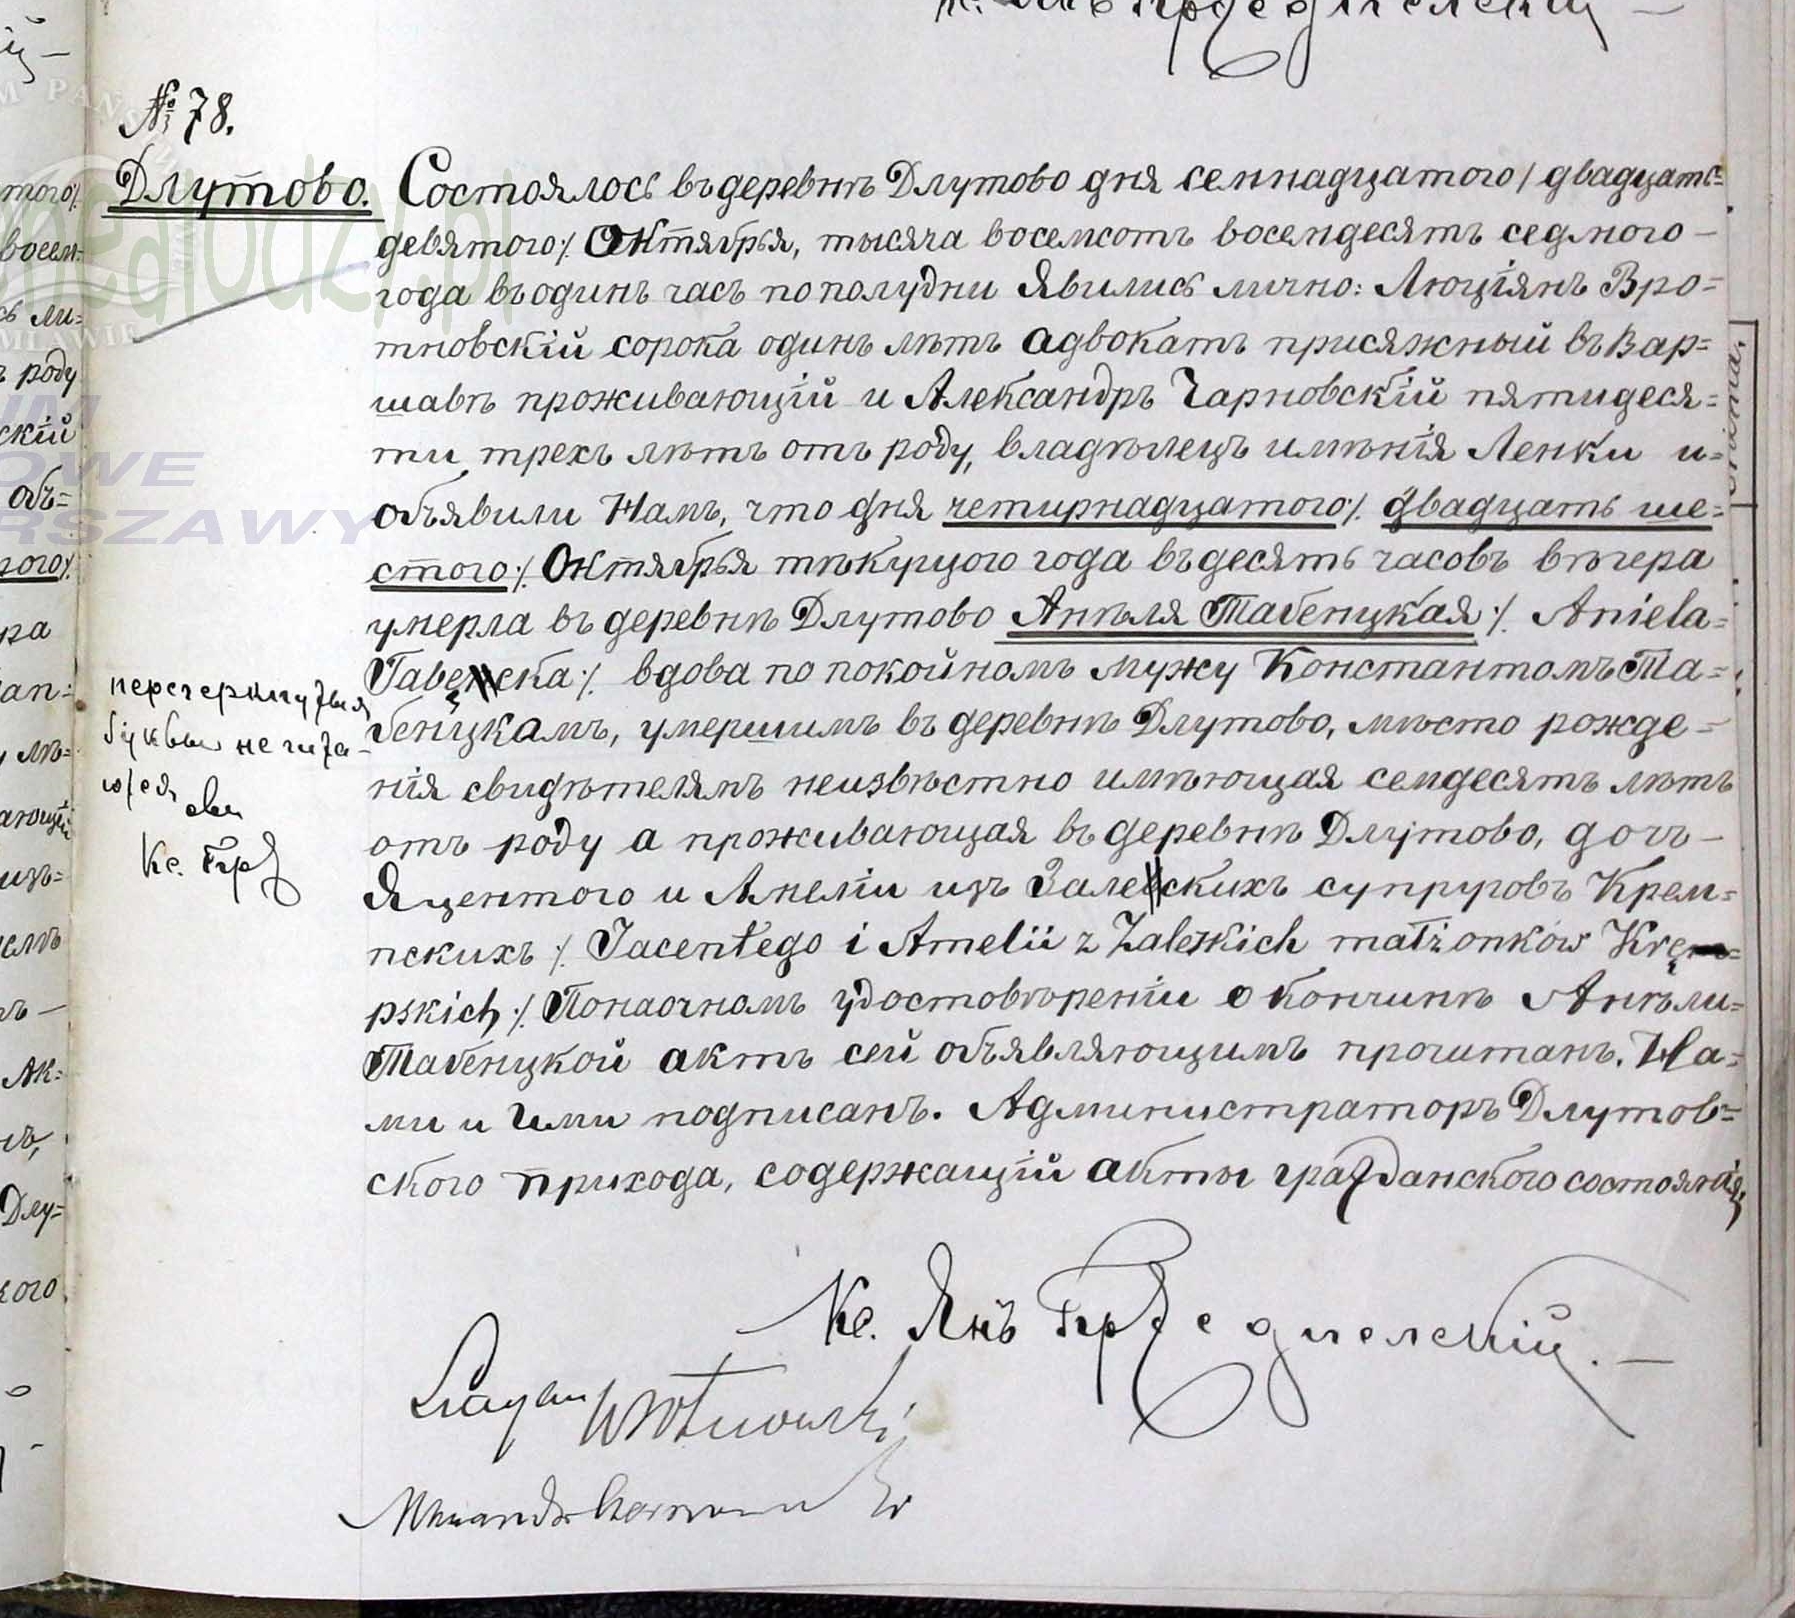 № 78.
Длутово. Состоялось въ деревнѣ Длутово дня семнадцатого / двадцать=
девятого ·/. Октября, тысяча восемсотъ восемдесятъ седмого —
года въ одинъ часъ по полудни Явились лично: Люціянъ Вро=
тновскій сорока одинъ лѣтъ адвокатъ присяжный въ Вар=
шавѣ проживающій и Александръ Чарновскій пятидеся=
ти трехъ лѣтъ отъ роду, владѣлецъ имѣнія Ленки и=
объявили Намъ, что дня четирнадцатого ·/. двадцать ше=
стого ·/. Октября тѣкущого года въ десять часовъ вѣчера
умерла въ деревнѣ Длутово Анѣля Табенцкая ·/. Aniela=
Tabęcka ·/. вдова по покойномъ мужу Константомъ Та=
бенцкамъ, умершимъ въ деревнѣ Длутово, мѣсто рожде=
нія свидѣтелямъ неизвѣстно имѣющая семдесятъ лѣтъ
отъ роду а проживающая въ деревнѣ Длутово, дочъ —
Яцентого и Амеліи изъ Залескихъ супруговъ Крем=
пскихъ ·/. Jacentego i Amelii z Zaleskich małżonków Krę=
pskich ·/. По наочномъ удостовѣреніи о кончинѣ Анѣли=
Табенцкой актъ сей объявляющимъ прочитанъ. На=
ми и Ими подписанъ. Администраторъ Длутов=
ского прихода, содержащій акты гражданского состоянія,
перечеркнутыя
буквы не чита=
ются
Кс. Прз
Кс. Янъ Прзедпелскій. —
Lucyan Wrotnowski
Alexander Czarnowski